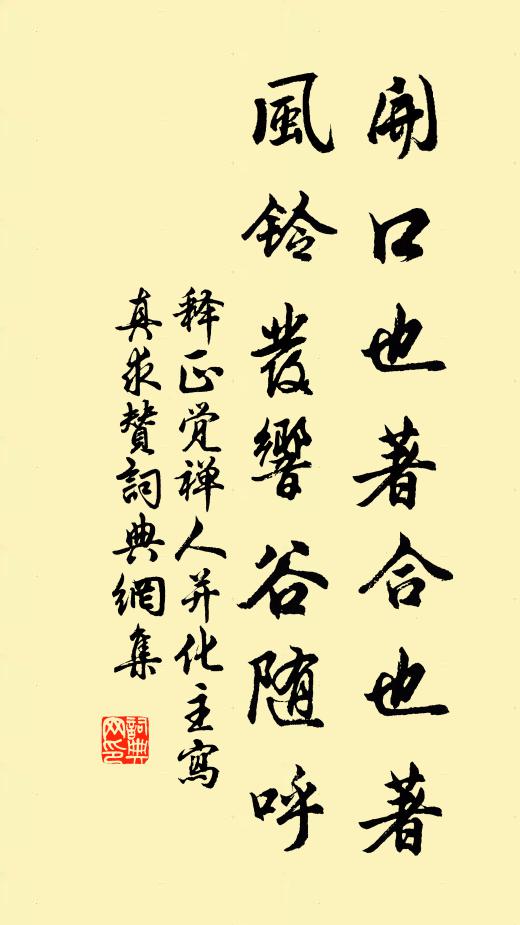 開口也著合也著
風鈴發響谷随呼
释正觉禅人并化主寫
真求贊詞典網集
詞典网印